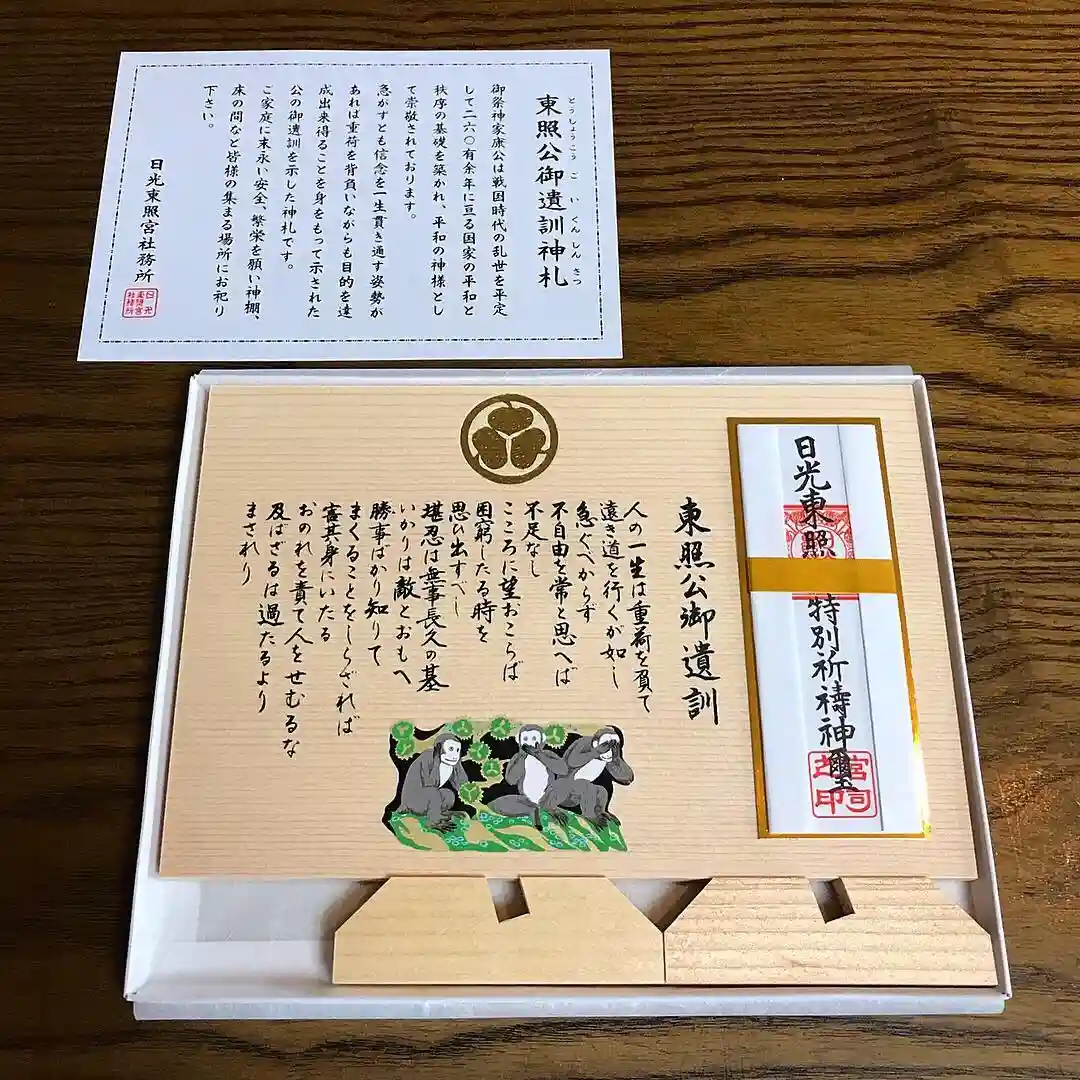 東照公御遺訓神札
とうしょうこうごいくんしんさつ
御祭神家康公は戦国時代の乱世を平定
して二六〇有余年に亘る国家の平和と
秩序の基礎を築かれ、平和の神様とし
て崇敬されております。
急がずとも信念を一生貫き通す姿勢が
あれば重荷を背負いながらも目的を達
成出来得ることを身をもって示された
公の御遺訓を示した神札です。
ご家庭に末永い安全、繁栄を願い神棚、
床の間など皆様の集まる場所にお祀り
下さい。
日光東照宮社務所
日光
東照宮
社務所
日光東照
特別祈祷神璽
宮司
之印
東照公御遺訓
人の一生は重荷を負て
遠き道を行くが如し
急ぐべからず
不自由を常と思へば
不足なし
こころに望おこらば
困窮したる時を
思ひ出すべし
堪忍は無事長久の基
いかりは敵とおもへ
勝事ばかり知りて
まくることをしらざれば
害其身にいたる
おのれを責て人をせむるな
及ばざるは過たるより
まされり